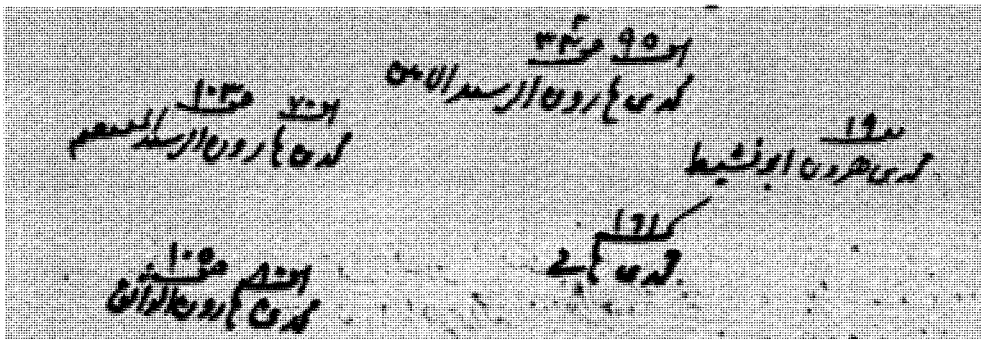 ٩٥
محمد بن هارون الرشيد الامين
٧٠ ص ١٠٣
محمد بن هارون الرشيد المعتصم
١٩
محمد بن هرون ابو نشيط
١٦١
محمد بن هاني
٨٠ ص ١٠٥
محمد بن هارون الواثق